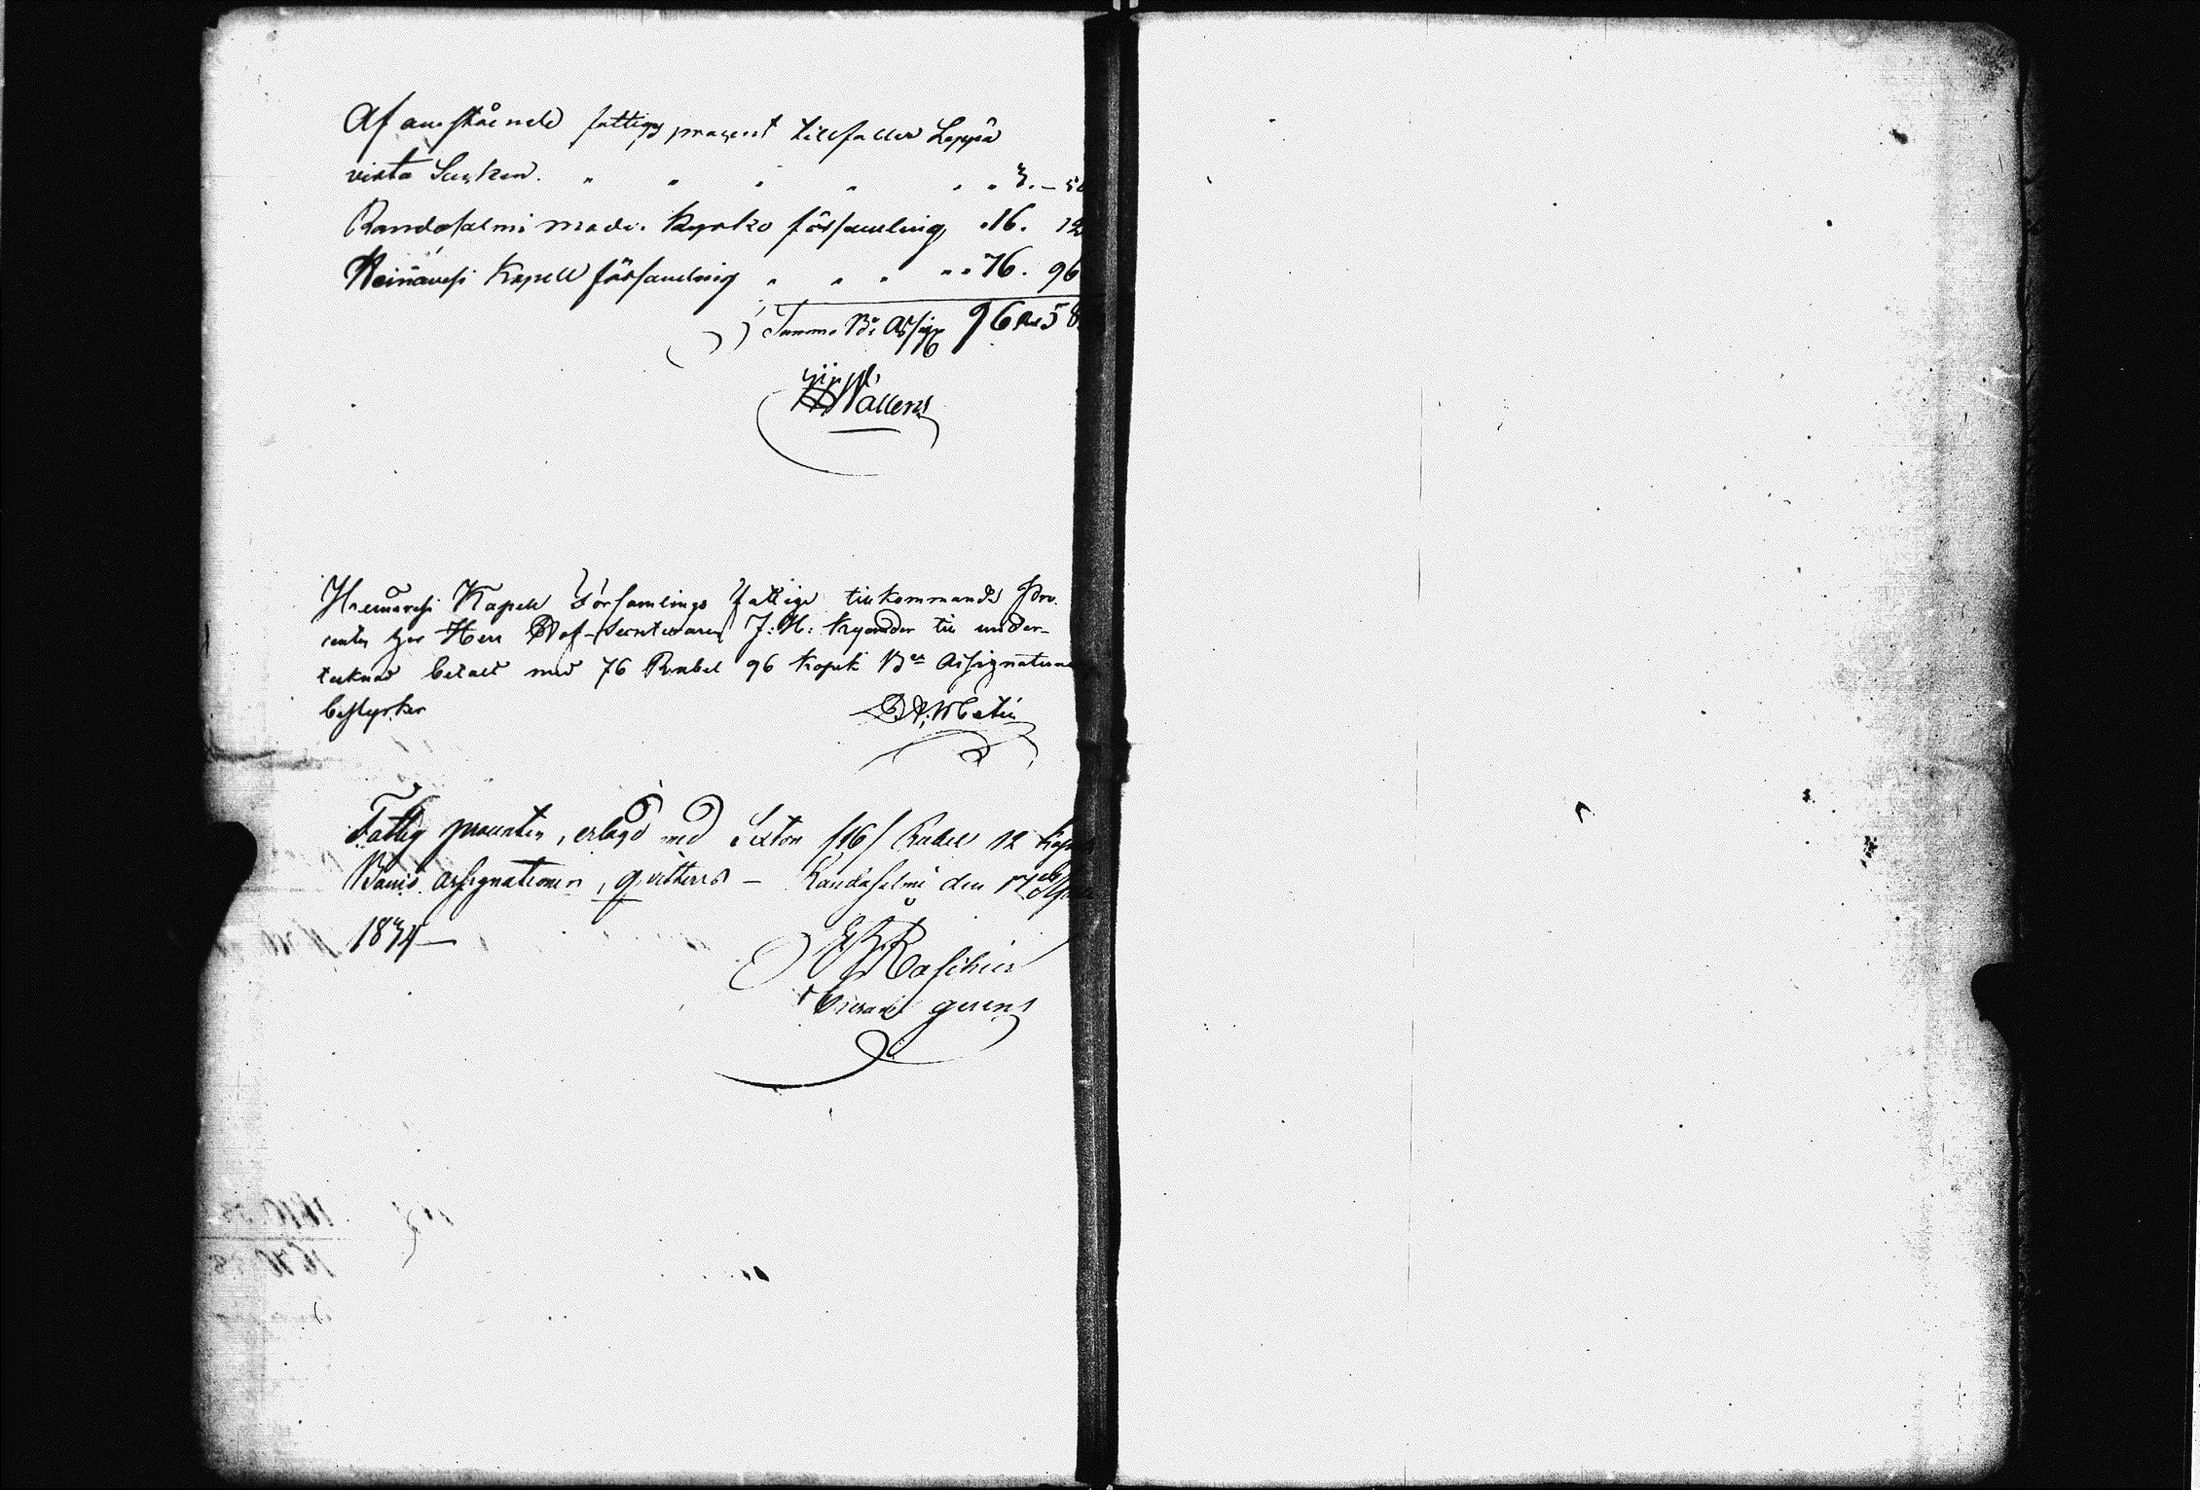 Af anstående fattigs procent tillfaller Leppä
virta Socken. " " " " " " 3. – 50
Randasalmi moder Kyrko församling, " 16. 12
Heinävesi Kapell församling " " " " " 76. 96
Summa B: Assign 96 Ru 58
Wallen
Heinävesi Kapell Församlings Fattige tillkommande Pro-
center har Herr Hof-Secreteraren J: H: Kyander till under-
tecknad betalt med 76 Rubel 96 Kopek B: Assignationer
bestyrker
Fattig procenten, erlagd med Sexton /16/ Rubel 12 Kopek
Banco assignationer, qvitteras – Randasalmi den
1834 –
gerens